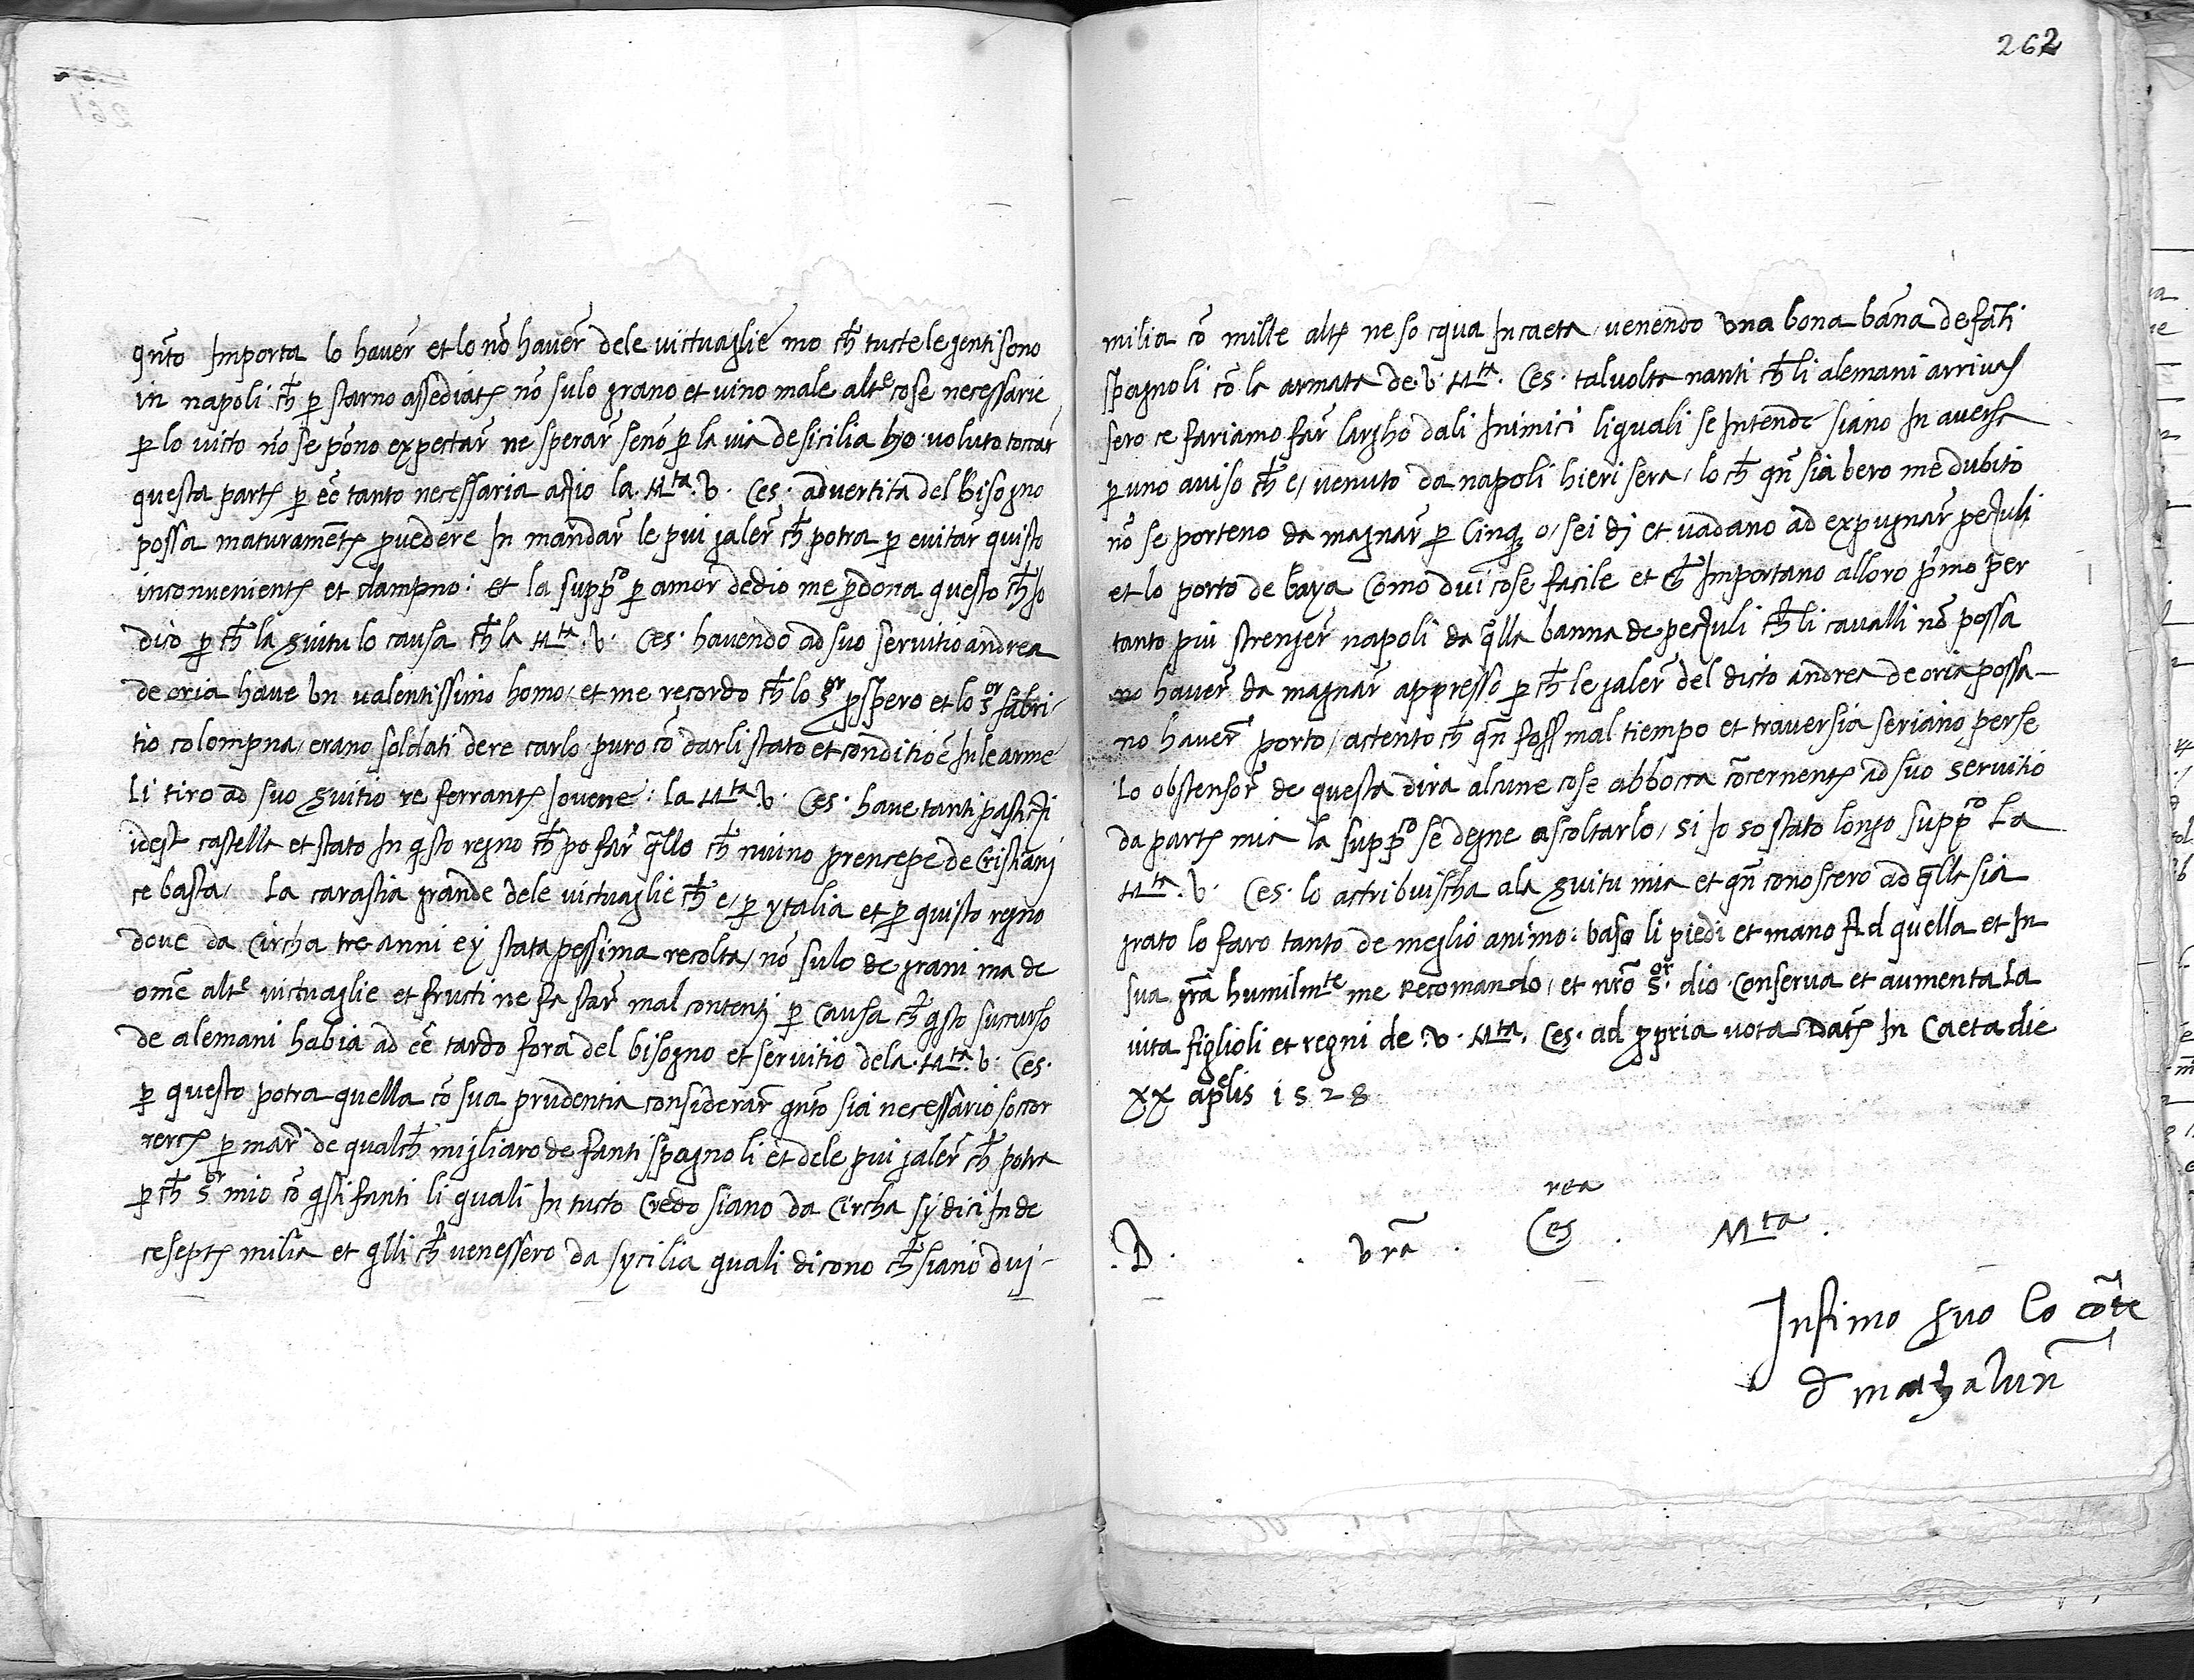 262
qñto Importa lo haver̃ et lo nõ haver̃ dele victuaglie mo ch̃ tucte le genti sono
in napoli ch̃ p starno assediate nõ sulo grano et vino male alt^e cose necessarie
p lo victo nõ se põno expectar̃ ne sperar̃ senõ p la via de sicilia ho voluto toccar̃
questa parte p ee tanto necessaria acio la M^ta. v. Ces. advertita del bisogno
possa maturamẽte pvedere In mandar̃ le piu galer̃ ch̃ potra p evitar̃ quisto
inconveniente et dampno: et la supp^co p amor de dio me pdona questo ch̃ Io
dico p ch̃ la svitu lo causa ch̃ la M^ta. v. Ces. havendo ad suo servitio andrea
de oria have un valentissimo homo, et me recordo ch̃ lo S^or pspero et lo S^or fabri-
tio colompna, erano soldati de re carlo puro cõ darli stato et conditiõe In le arme
li tiro ad suo svitio re ferrante Iovene: la M^ta. v. Ces. have tanti
idest castella et stato In qsto regno ch̃ po far̃ qllo ch̃ nuino prencepe de Cristiani
ce basta, La carastia grande dele victuaglie ch̃ e, p ytalia et p quisto regno
dove da Circha tre anni ey stata pessima recolta, nõ sulo de grani ma de
omẽ alt^e victuaglie et fructi ne fa star̃ mal contenti p causa ch̃ qsto succurso
de alemani habia ad ee tardo fora del bisogno et servitio dela M^ta. v. Ces.
p questo potra quella cõ sua prudentia considerar̃ qñto sia necessario soccor
rerce p mar̃ de qualch̃ migliaro de fanti spagnoli et dele piu galer̃ ch̃ potra
p ch̃ S^or mio cõ qsti fanti li quali In tucto Credo siano da Circha sydici In de
cesepte milia et qlli ch̃ venessero da sycilia quali dicono ch̃ siano dui-
milia cõ mille altr ne so cqua In caeta, venendo una bona bãna de fãti
spagnoli cõ la armata de v. M^ta. Ces. talvolta nanti ch̃ li alemani arrivas
sero ce fariamo far̃ largho dali Inimici li quali se Intende siano In aversa
p uno aviso ch̃ e, venuto da napoli hieri sera, lo ch̃ qñ sia vero me dubito
nõ se porteno da magnar̃ p Cinq o, sei dj et vadano ad expugnar̃ peczuli
et lo porto de baya Como dui cose facile et ch̃ Importano alloro pmo per
tanto piu strenger̃ napoli da qlla banna de peczuli ch̃ li cavalli nõ possa
no haver̃ da magnar̃ appresso p ch̃ le galer̃ del dicto andrea de oria possa-
no haver̃ porto, actento ch̃ qñ foss mal tiempo et traversia seriano perse
Lo obstensor̃ de questa dira alcune cose abbocca cõcernente ad suo servitio
da parte mia la supp^co se degne ascoltarlo, si Io so stato longo supp^co La
M^ta. v. Ces. lo actribuischa ala svitu mia et qñ conoscero ad qlla sia
grato lo faro tanto de meglio animo: baso li piedi et mano Ad quella et In
sua grã humilm^te me recomando, et nr̃o S^or. dio Conserva et aumenta La
vita figlioli et regni de v. M^ta. Ces. ad ppria vota Date In Caeta die
XX aplis 1528
D. . vr̃a . Ces^rea . M^ta.
Infimo svo lo cõte
d matzalun̄